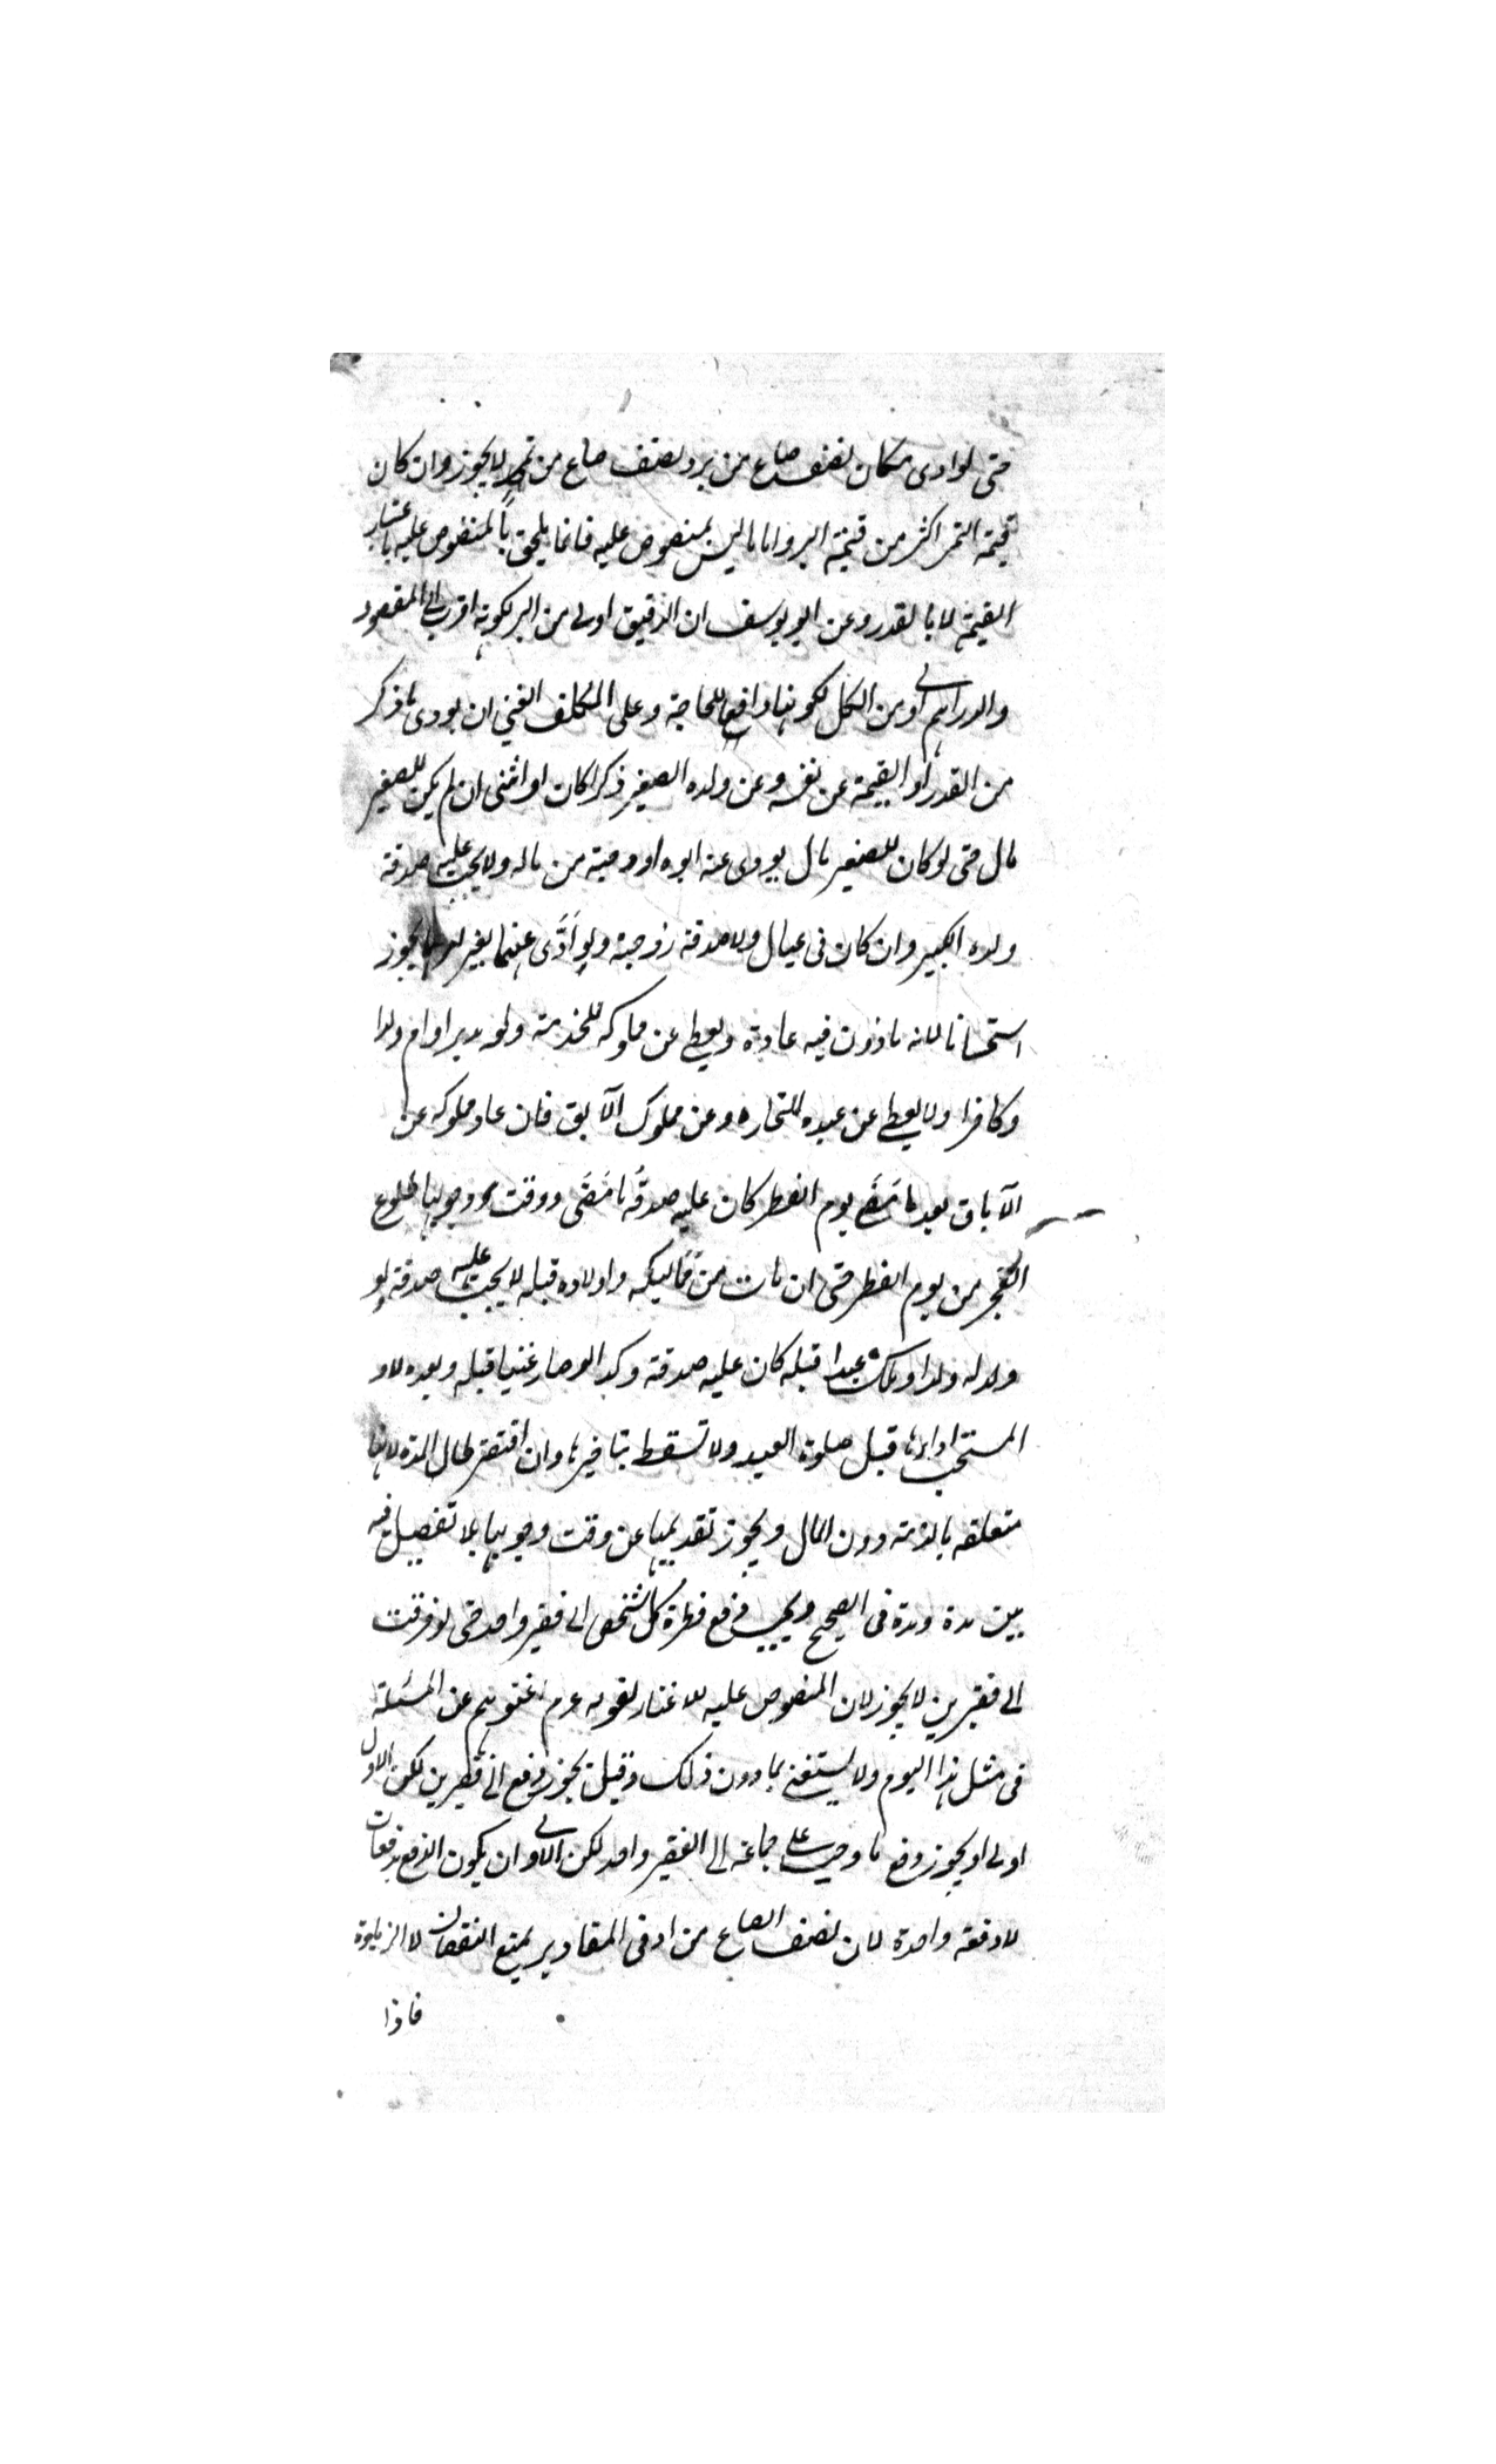 حتى لو ادى مكان نصف صاع من بر ونصف صاع من تمر لا يجوز وان كان
قيمة التمر اكثر من قيمة البر واما ما ليس بمنصوص عليه فانما يلحق بالمنصوص عليه باعتبار
القيمة لا بالقدر وعن ابو يوسف ان الدقيق اولى من البر لكونه اقرب الى المقصود
والدراهم اولى من الكل لكونها دافع للحاجة وعلى المكلف الغني ان يودى ما ذكر
من القدر او القيمة عن نفسه وعن ولده الصغير ذكرا كان او انثى ان لم يكن للصغير
مال حتى لو كان للصغير مال يودى عنه ابوه او وصيه من ماله ولا يجب عليه صدقة
ولده الكبير وان كان فى عيال ولا صدقة زوجته ولو اَدَّى عنهما بغير امرهما يجوز
استحسانا لانه ماذون فيه عادة ويعطى عن مملوكه للخدمة ولو مدبر او ام ولد
وكافرا ولا يعطى عن عبده للتجاره وعن مملوك الآبق فان عاد مملوكه عن
الآباق بعد ما مَضَى يوم الفطر كان عليه صدقُه ما مَضَى ووقت وجوبها طلوع
الفجر من يوم الفطر حتى ان مات من مماليكه واولاده قبله لا يجب عليه صدقة ولو
ولد له ولد او ملك عبدا قبله كان عليه صدقة وكذا لو صار غنيا قبله وبعده لا و
المستحب اداءها قبل صلوة العيد ولا تسقط بتاخيرها وان افتقر لطال المدة لانها
متعلقه بالذمة دون المال ويجوز تقديمها عن وقت وجوبها بلا تفصيل فيه
بين مدة ومدة فى الصحيح ويجب دفع فطرة كل شخص الى فقير واحد حتى لو فرقت
الى فقيرين لا يجوز لان المنصوص عليه الاغناء لقوله عم اغنوهم عن المسئلة
فى مثل هذا اليوم ولا يستغنى بما دون ذلك وقيل يجوز دفع الى فقيرين لكن الاول
اولى او يجوز دفع ما وجب على جماعة الى الفقير واحد لكن الاولى ان يكون الدفع بدفعات
لا دفعة واحدة لان نصف الصاع من ادنى المقادير يمنع النقصان لا الزيادة
فاذا